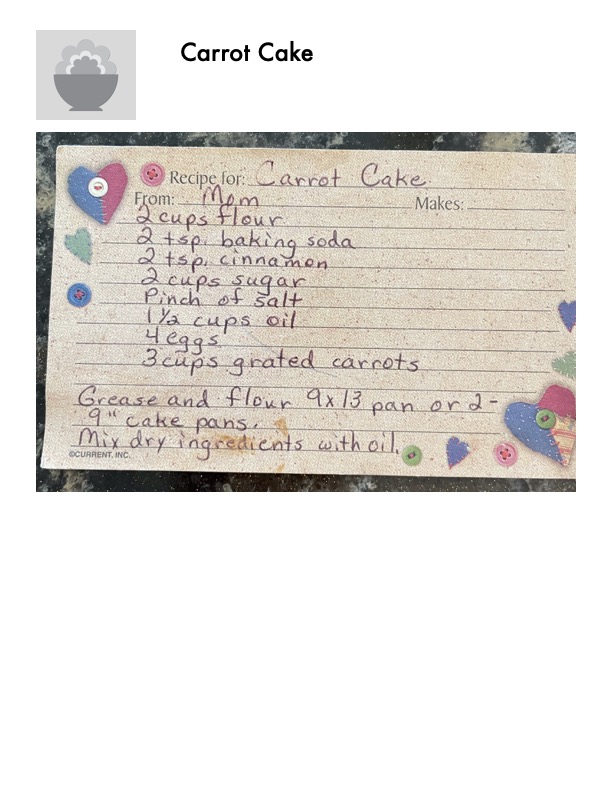 Carrot Cake
Recipe for: Carrot Cake
From: Mom Makes:
2 cups flour
2 tsp. baking soda
2 tsp. cinnamon
2 cups sugar
Pinch of salt
1 1/2 cups oil
4 eggs
3 cups grated carrots
Grease and flour 9x13 pan or 2-
9" cake pans.
Mix dry ingredients with oil.
©CURRENT, INC.